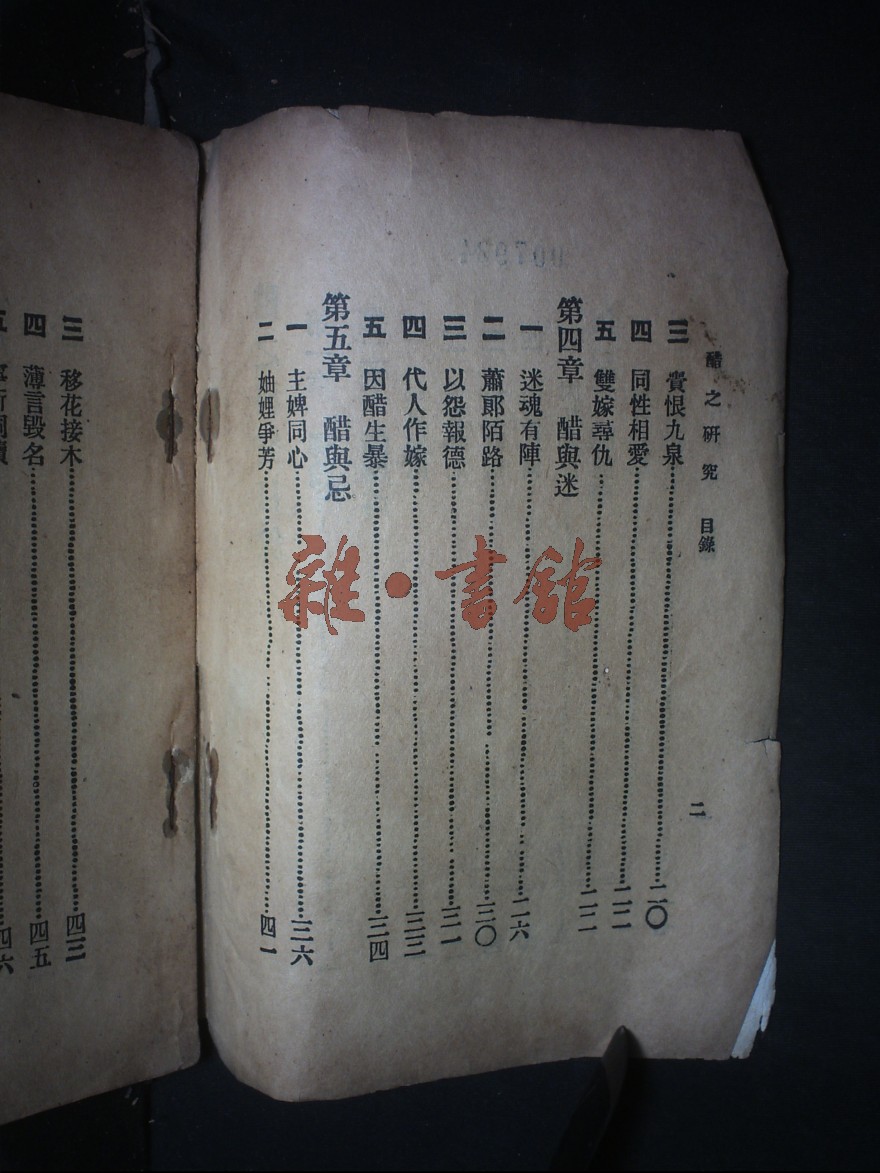 醋之研究 目錄 二
三 賫恨九泉 二〇
四 同性相愛 二二
五 雙嫁尋仇 二二
第四章 醋與迷
一 迷魂有陣 二六
二 蕭郎陌路 三〇
三 以怨報德 三一
四 代人作嫁 三三
五 因醋生暴 三四
第五章 醋與忌
一 主婢同心 三六
二 妯娌爭芳 四一
三 移花接木 四三
四 薄言毀名 四五
五 四六
雜·書館